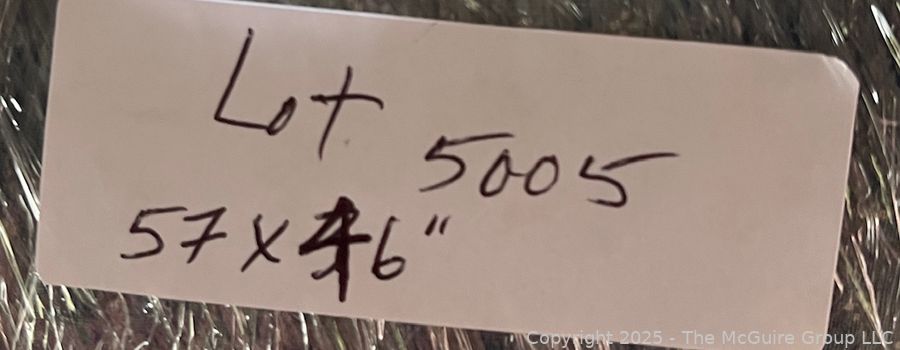 Lot
5005
57 x 46"
Copyright 2025 - The McGuire Group LLC